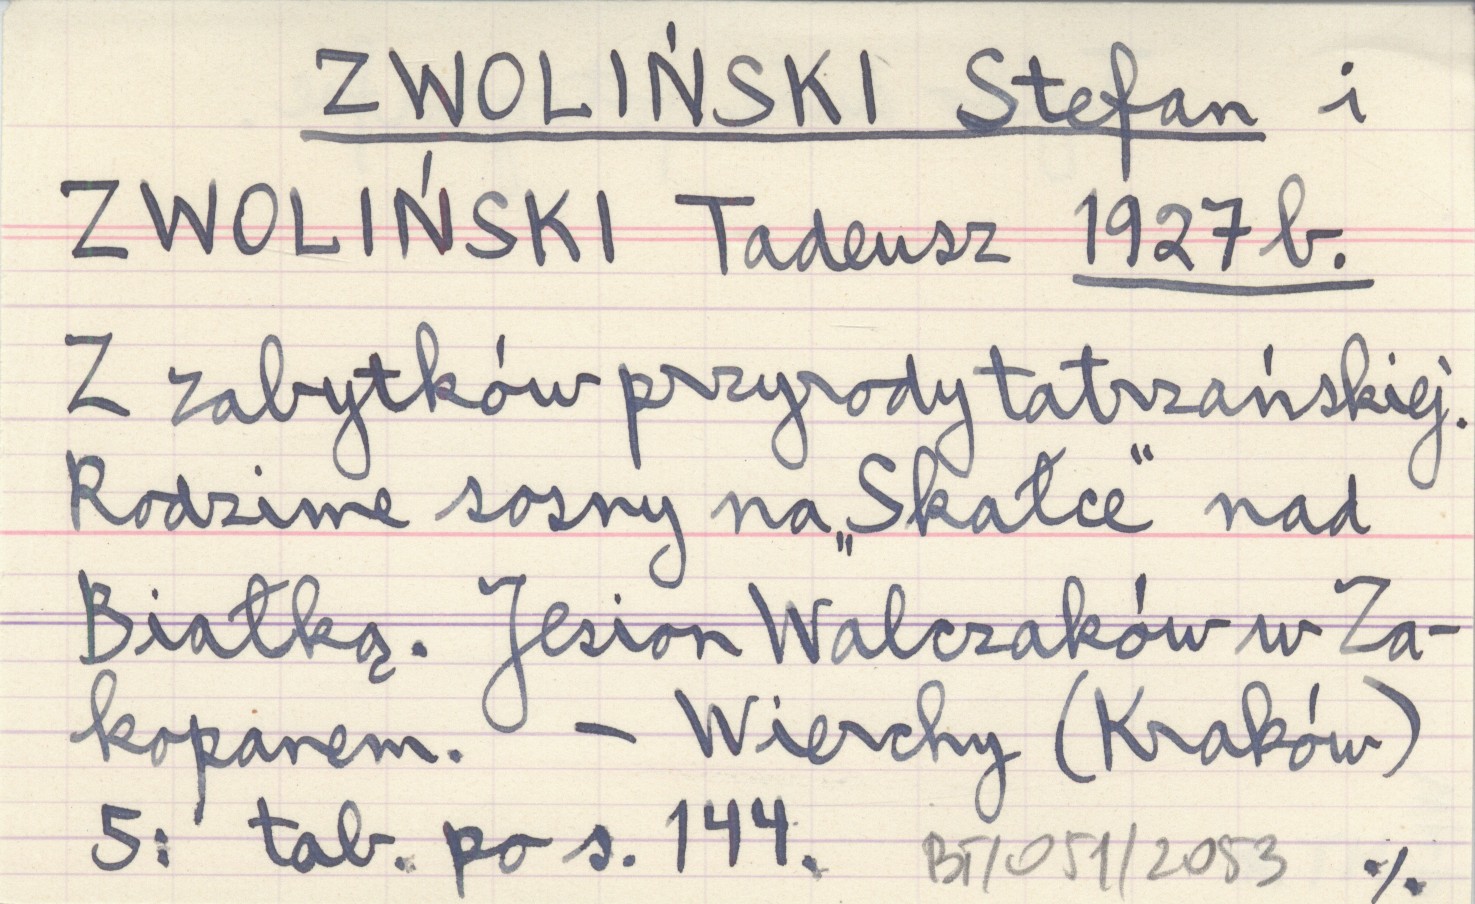 ZWOLIŃSKI Stefan i
ZWOLIŃSKI Tadeusz 1927b.
Z zabytków przyrody tatrzańskiej.
Rodzime sosny na „Skałce“ nad
Białką. Jesion Walczaków w Za-
kopanem. — Wierchy (Kraków)
5: tab. po s. 144. BT/051/2053 ./.